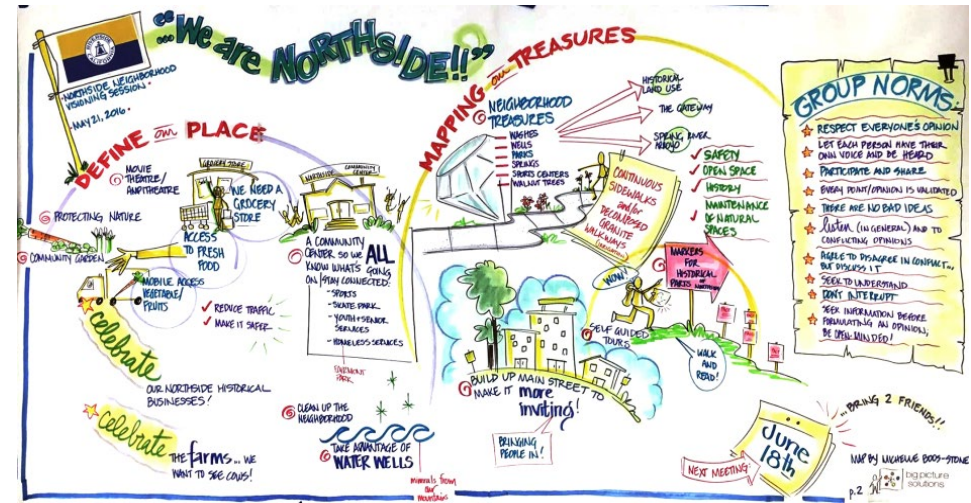 "We are NORTHSIDE!!"
NORTHSIDE NEIGHBORHOOD
VISIONING SESSION
MAY 21, 2016
DEFINE our PLACE
MOVIE
THEATRE/
AMPITHEATRE
GROCERY STORE
WE NEED A
GROCERY
STORE
NORTHSIDE
COMMUNITY
CENTER
PROTECTING NATURE
COMMUNITY GARDEN
ACCESS
TO FRESH
FOOD
MOBILE ACCESS
VEGETABLE/
FRUITS
REDUCE TRAFFIC
MAKE IT SAFER
A COMMUNITY
CENTER SO WE ALL
KNOW WHAT'S GOING
ON/STAY CONNECTED:
- SPORTS
- SKATE PARK
- YOUTH + SENIOR
SERVICES
- HOMELESS SERVICES
FAIRMONT
PARK
celebrate
OUR NORTHSIDE HISTORICAL
BUSINESSES!
celebrate
THE farms... WE
WANT TO SEE COWS!
CLEAN UP THE
NEIGHBORHOOD
TAKE ADVANTAGE OF
WATER WELLS
minerals from
the
mountains
MAPPING our TREASURES
NEIGHBORHOOD
TREASURES
WASHES
WELLS
PARKS
SPRINGS
SPORTS CENTERS
WALNUT TREES
HISTORICAL
LAND USE
THE GATEWAY
SPRING RIVER
ARROYO
CONTINUOUS
SIDEWALKS
and/or
DECOMPOSED
GRANITE
WALKWAYS
SAFETY
OPEN SPACE
HISTORY
MAINTENANCE
OF NATURAL
SPACES
WOW!
MARKERS
FOR
HISTORICAL
PARTS OF NORTHSIDE
SELF GUIDED
TOURS
WALK
AND
READ!
BUILD UP MAIN STREET TO
MAKE IT more
inviting!
BRINGING
PEOPLE IN!
GROUP NORMS
RESPECT EVERYONE'S OPINION
LET EACH PERSON HAVE THEIR
OWN VOICE AND BE HEARD
PARTICIPATE AND SHARE
EVERY POINT/OPINION IS VALIDATED
THERE ARE NO BAD IDEAS
listen (IN GENERAL) AND TO
CONFLICTING OPINIONS
AGREE TO DISAGREE IN CONFLICT...
BUT DISCUSS IT
SEEK TO UNDERSTAND
DON'T INTERRUPT
SEEK INFORMATION BEFORE
FORMULATING AN OPINION,
BE OPEN-MINDED!
NEXT MEETING:
June
18th
...BRING 2 FRIENDS!!
MAP BY MICHELLE BOOS-STONE
p.2
big picture
solutions